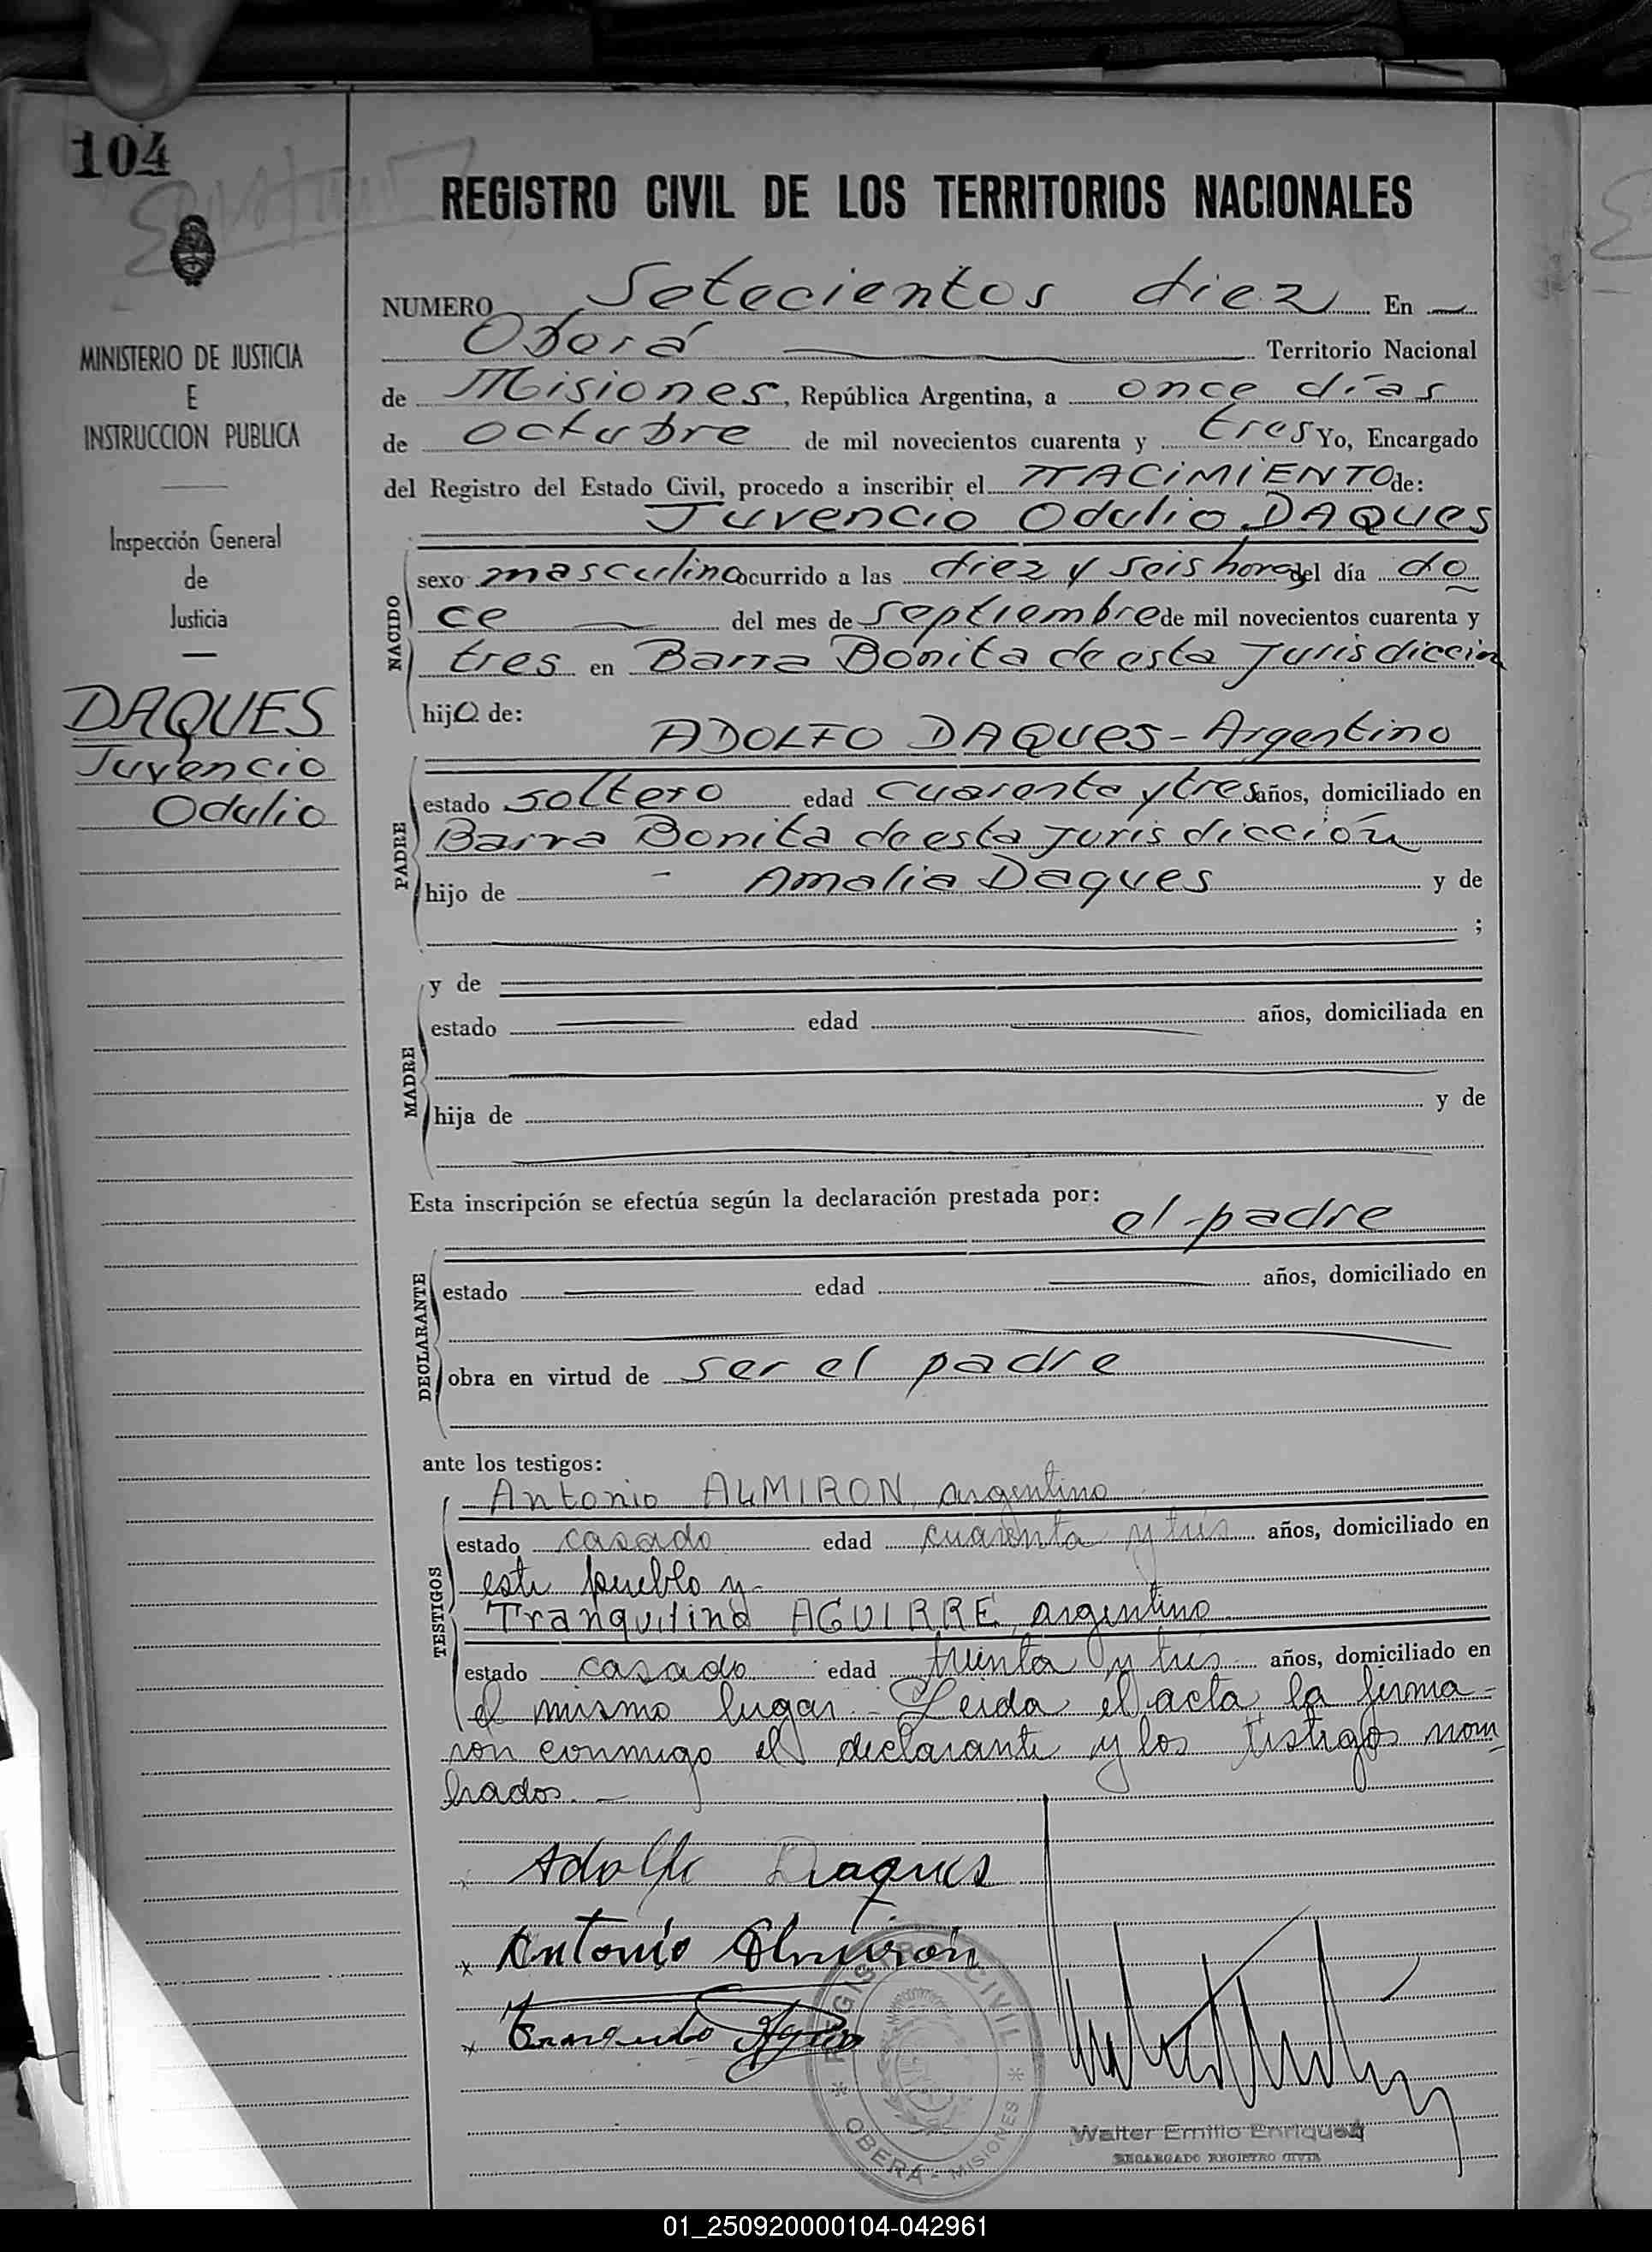 104
REGISTRO CIVIL DE LOS TERRITORIOS NACIONALES
NUMERO Setecientos diez En
Oberá Territorio Nacional
de Misiones, República Argentina, a once días
de octubre de mil novecientos cuarenta y tres Yo, Encargado
del Registro del Estado Civil, procedo a inscribir el NACIMIENTO de:
Juvencio Odulio DAQUES
MINISTERIO DE JUSTICIA
E
INSTRUCCION PUBLICA
Inspección General
de
Justicia
DAQUES
Juvencio
Odulio
NACIDO
sexo masculino ocurrido a las diez y seis horas del día do
ce del mes de septiembre de mil novecientos cuarenta y
tres en Barra Bonita de esta Jurisdiccin
hijo de:
PADRE
ADOLFO DAQUES - Argentino
estado soltero edad cuarenta y tres años, domiciliado en
Barra Bonita de esta jurisdicción
hijo de - Amalia Daques y de
;
MADRE
y de
estado edad años, domiciliada en
hija de y de
Esta inscripción se efectúa según la declaración prestada por:
el padre
DECLARANTE
estado edad años, domiciliado en
obra en virtud de ser el padre
ante los testigos:
TESTIGOS
Antonio ALMIRON, argentino
estado casado edad cuarenta y tres años, domiciliado en
este pueblo y
Tranquilino AGUIRRE, argentino
estado casado edad treinta y tres años, domiciliado en
el mismo lugar.- Leida el acta la firma-
ron conmigo el declarante y los testigos nom
brados.-
Adolfo Daques
x Antonio Almirón
x
REGISTRO CIVIL
* OBERÁ - MISIONES *
Walter Emilio Enriquez
ENCARGADO REGISTRO CIVIL
01_250920000104-042961